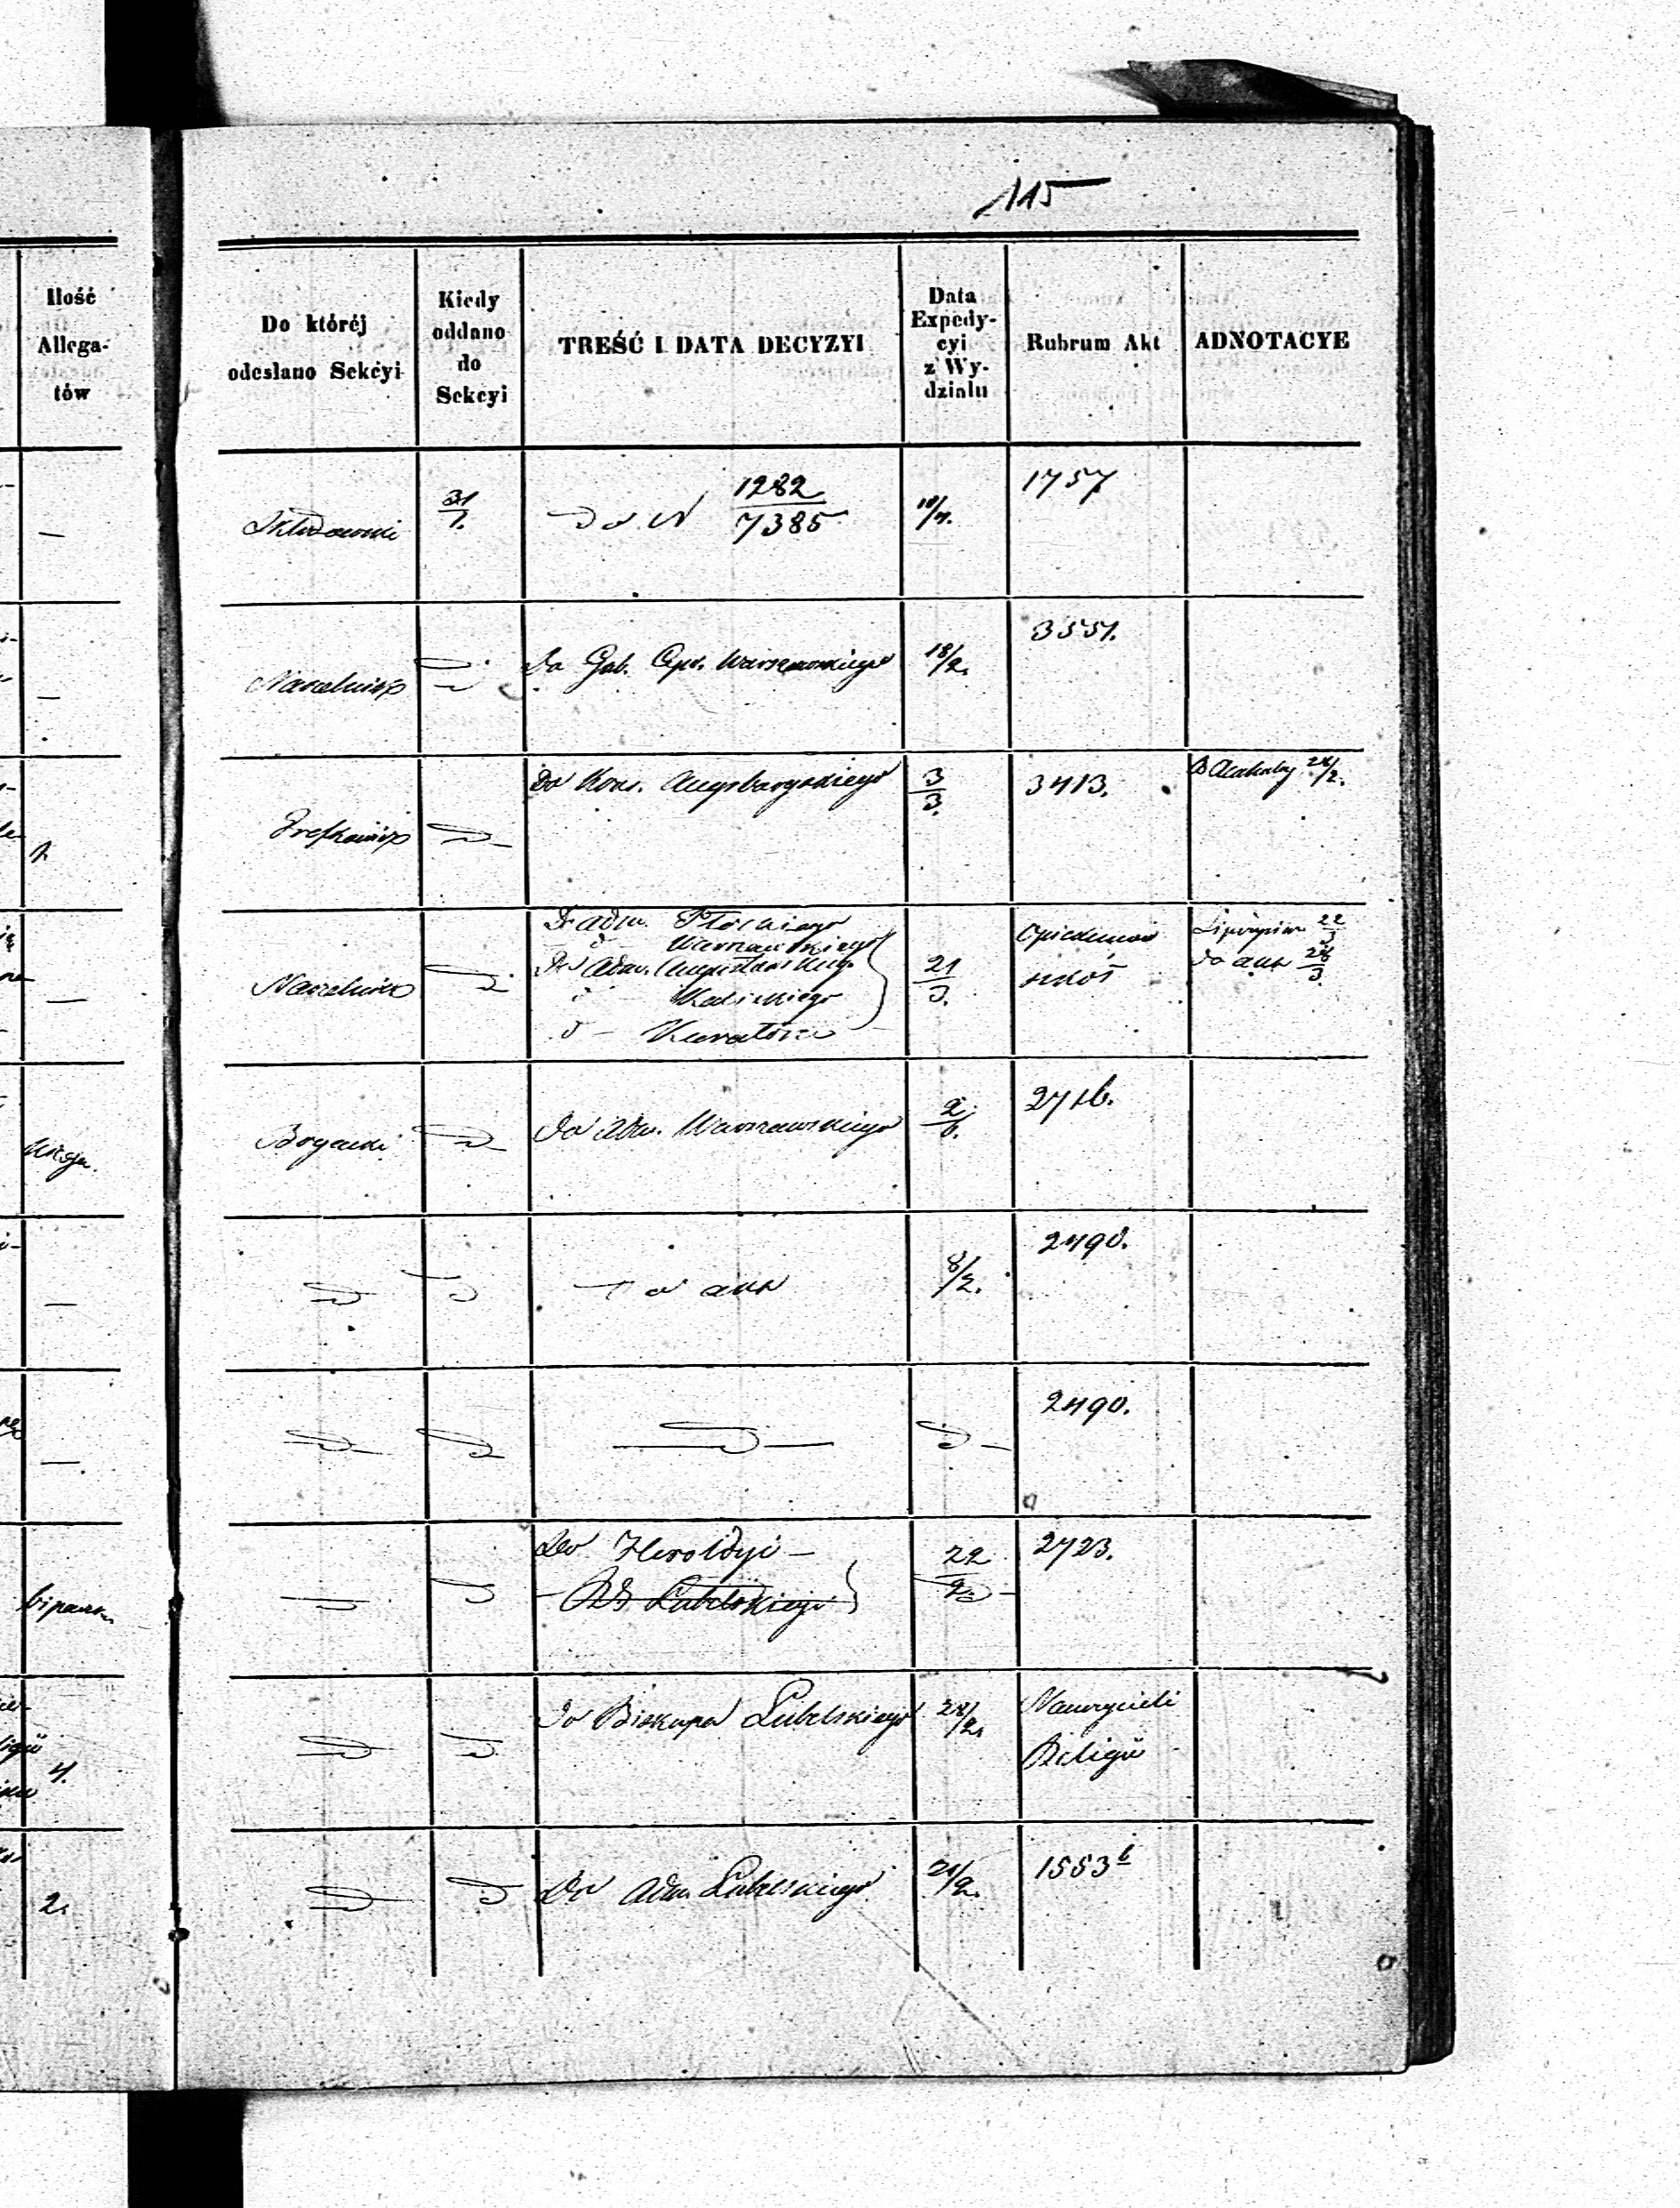 115
Ilość Allega- tów
Do którėj odesłano Sekcyi
Kiedy oddano do Sekcyi
TREŚĆ I DATA DECYZYI
Data Expedy- cyi z Wy- działu
Rubrum Akt
ADNOTACYE
—
31/1.
Do N 1282/7385
1757
—
Naczelnik
Do Gub. Cyw. Warszawskiego
18/2.
3551.
1.
Do Kons. Augsburgskiego
3/3.
3413.
—
Naczelnik
Do Adm. Płockiego
d° Warszawskiego
Do Adm. Augustowskiego
d° Kaliskiego
d° — Kuratora
21/3.
22/3
do akt 28/3.
Księga.
Bogacki
Do Adm. Warszawskiego
2/6.
2716.
—
Do akt
8/2.
2490.
—
2490.
Do Heroldyi —
Lubelskiego
22/2
2723.
4.
Do Biskupa Lubelskiego
28/2.
Nauczyciele
Religii
2.
Do Adm. Lubelskiego
21/2.
1553 b